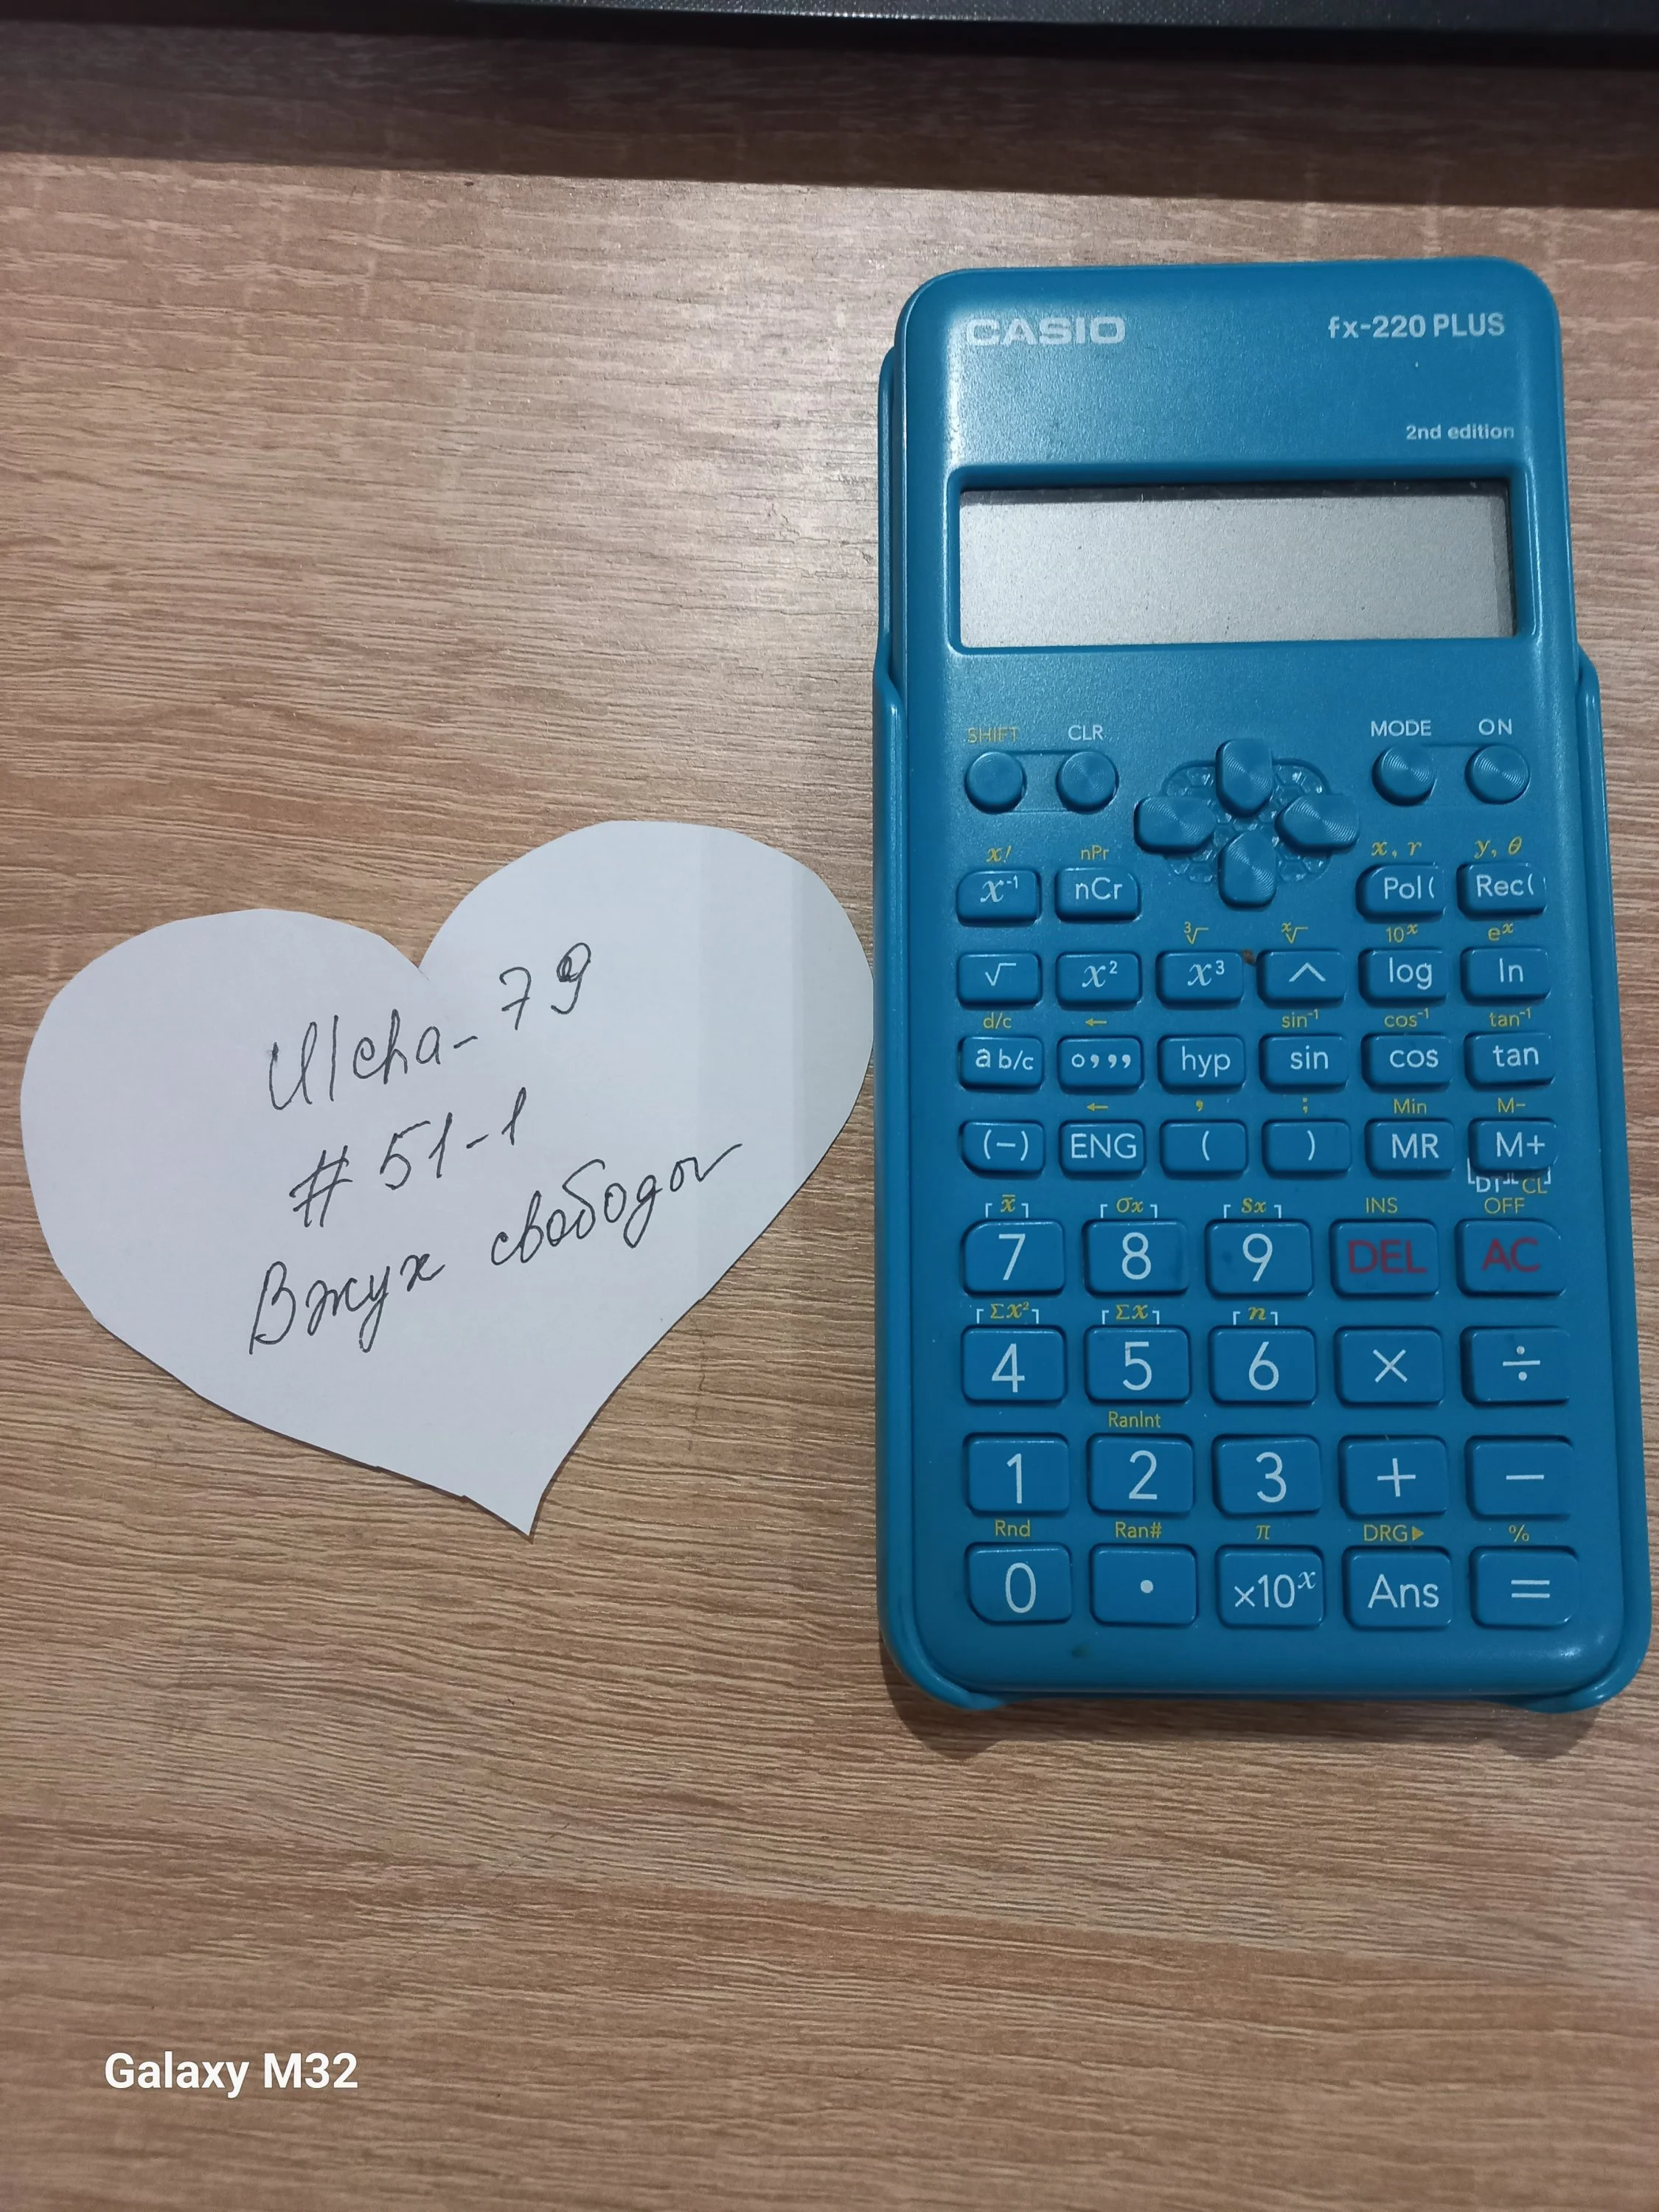 CASIO fx-220 PLUS
2nd edition
SHIFT CLR MODE ON
x! nPr x, r y, θ
x⁻¹ nCr Pol( Rec(
³√ ˣ√ 10ˣ eˣ
√ x² x³ ^ log ln
d/c ← sin⁻¹ cos⁻¹ tan⁻¹
a b/c o,,, hyp sin cos tan
← , ; Min M-
(-) ENG ( ) MR M+
DT CL
x̄ σx sx INS OFF
7 8 9 DEL AC
Σx² Σx n
4 5 6 × ÷
RanInt
1 2 3 + −
Rnd Ran# π DRG▶ %
0 • ×10ˣ Ans =
-79
#51-1
Вжух свободой
Galaxy M32